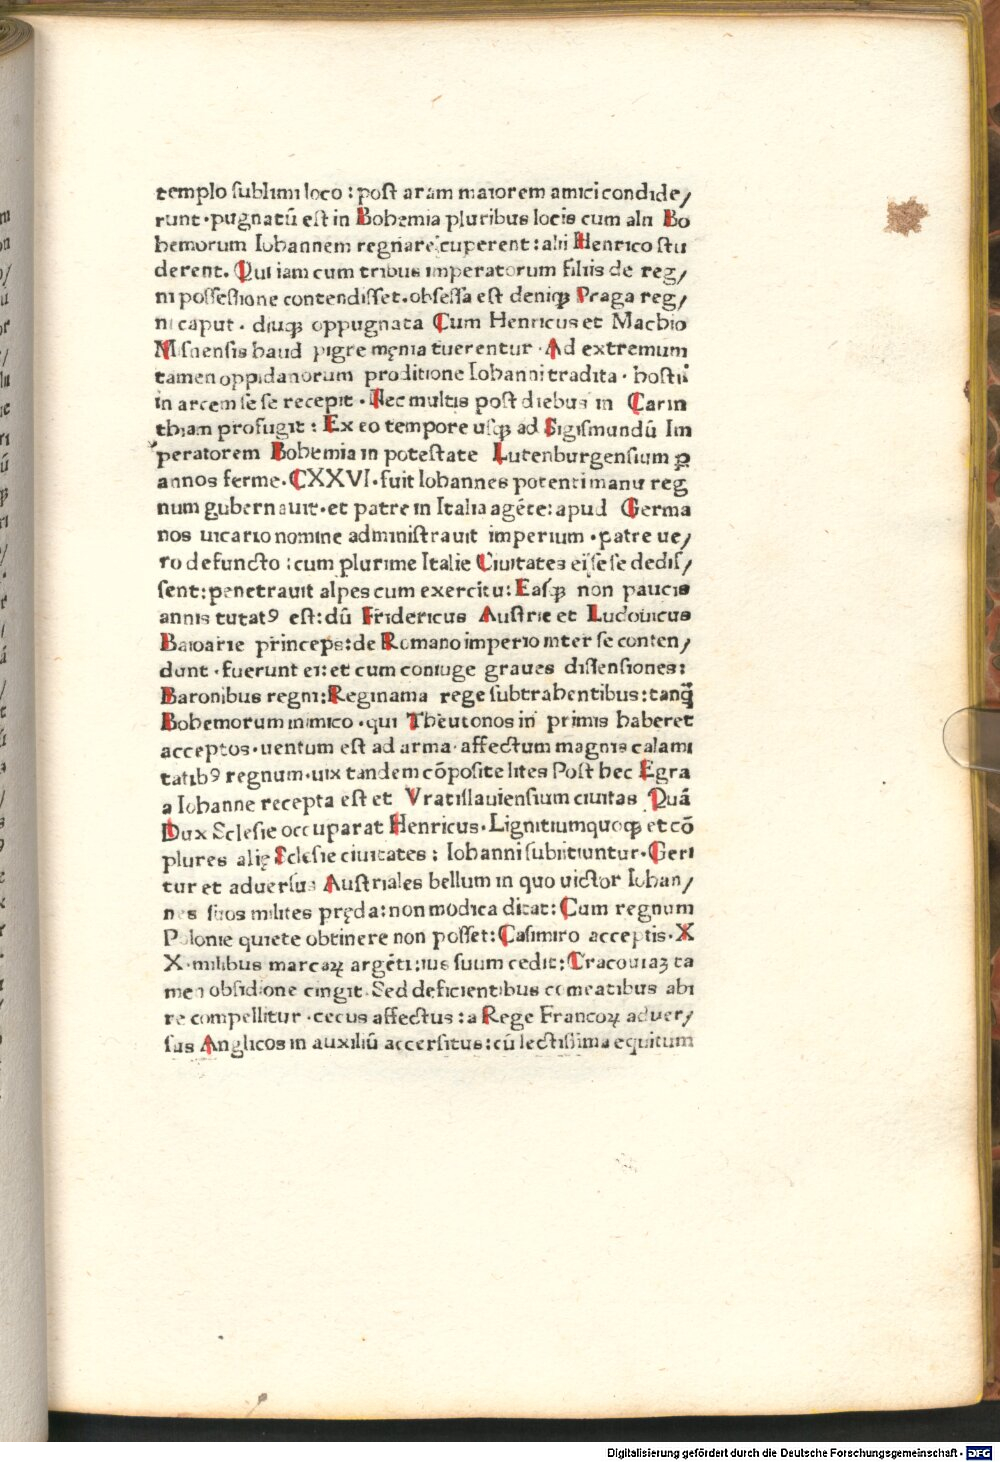 templo sublimi loco : post aram maiorem amici condide/
runt · pugnatū est in Bohemia pluribus locis cum alii Bo
hemorum Iohannem regnare cuperent : alii Henrico stu
derent. Qui iam cum tribus imperatorum filiis de reg/
ni possessione contendisset. obsessa est deniqꝫ Praga reg/
ni caput · diuqꝫ oppugnata Cum Henricus et Machio
Misnensis haud pigre męnia tuerentur · Ad extremum
tamen oppidanorum proditione Iohanni tradita · hostii
in arcem se se recepit · Nec multis post diebus in Carin
thiam profugit : Ex eo tempore usqꝫ ad Sigismundū Im
peratorem Bohemia in potestate Lutenburgensium ꝑ
annos ferme · CXXVI · fuit Iohannes potenti manu reg
num gubernauit · et patre in Italia agēte : apud Germa
nos uicario nomine administrauit imperium · patre ue/
ro defuncto : cum plurime Italie Ciuitates ei sese dedis/
sent : penetrauit alpes cum exercitu : Easqꝫ non paucis
annis tutatꝰ est : dū Fridericus Austrie et Ludouicus
Baioarie princeps : de Romano imperio inter se conten/
dunt · fuerunt ei : et cum coniuge graues dissensiones :
Baronibus regni : Reginam a rege subtrahentibus : tanqꝫ
Bohemorum inimico · qui Theutonos in primis haberet
acceptos · uentum est ad arma · affectum magnis calami
tatibꝰ regnum · uix tandem cōposite lites Post hec Egra
a Iohanne recepta est et Vratislauiensium ciuitas Quā
Dux Sclesie occuparat Henricus · Lignitium quoqꝫ et cō
plures alię Sclesie ciuitates : Iohanni subiitiuntur · Geri
tur et aduersus Australes bellum in quo uictor Iohan/
nes suos milites pręda : non modica ditat : Cum regnum
Polonie quiete obtinere non posset : Casimiro acceptis · X
X · milibus marcaꝝ argēti : ius suum cedit : Cracouiaꝫ ta
men obsidione cingit · Sed deficientibus comeatibus abi
re compellitur · cecus affectus : a Rege Francoꝝ aduer/
sus Anglicos in auxiliū accersitus : cū lectissima equitum
Digitalisierung gefördert durch die Deutsche Forschungsgemeinschaft - DFG